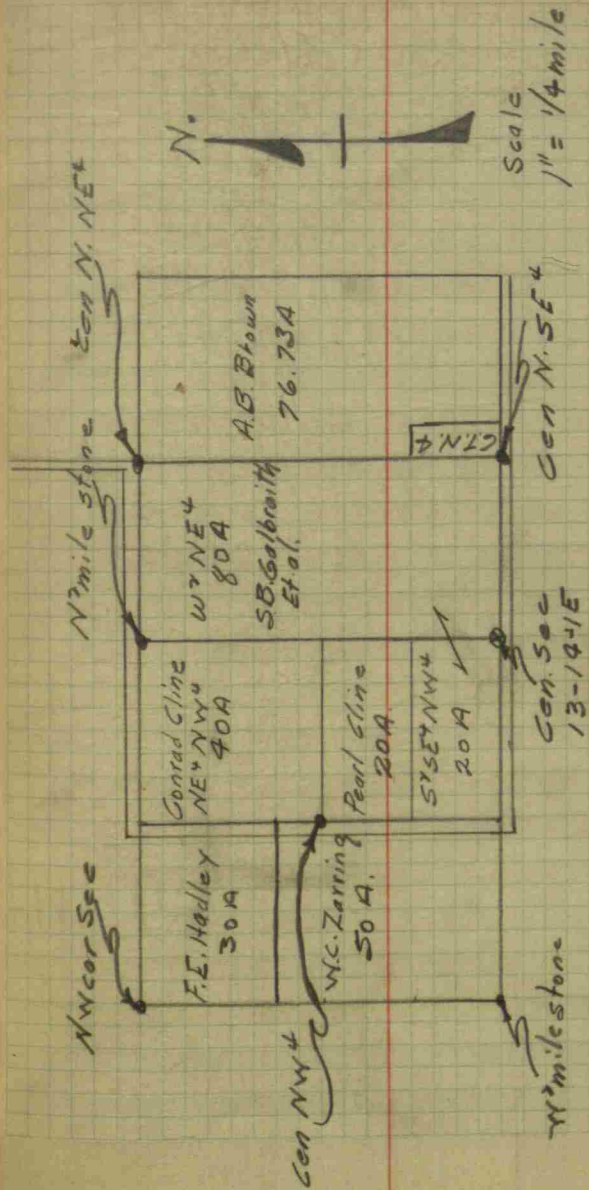 NW cor Sec
N² mile stone
Cen N. NE⁴
N.
F.E. Hadley
30A
Conrad Cline
NE⁴ NW⁴
40A
W² NE⁴
80A
S.B. Galbraith
Et al.
A.B. Brown
76.73A
Cen NW⁴
W.C. Zarring
50 A.
Pearl Cline
20A
S² SE⁴ NW⁴
20 A
W² mile stone
Cen. Sec
13-14-1E
Cen N. SE⁴
Scale
1" = 1/4 mile